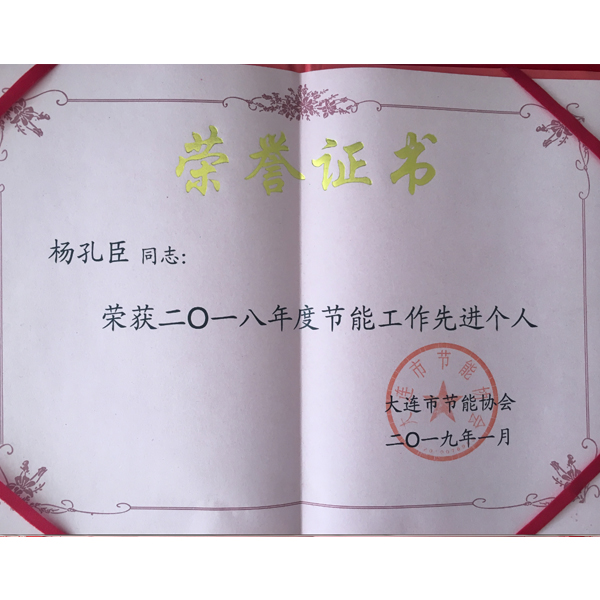 荣誉证书
杨孔臣 同志:
荣获二〇一八年度节能工作先进个人
大连市节能协会
大连市节能协会
二〇一九年一月